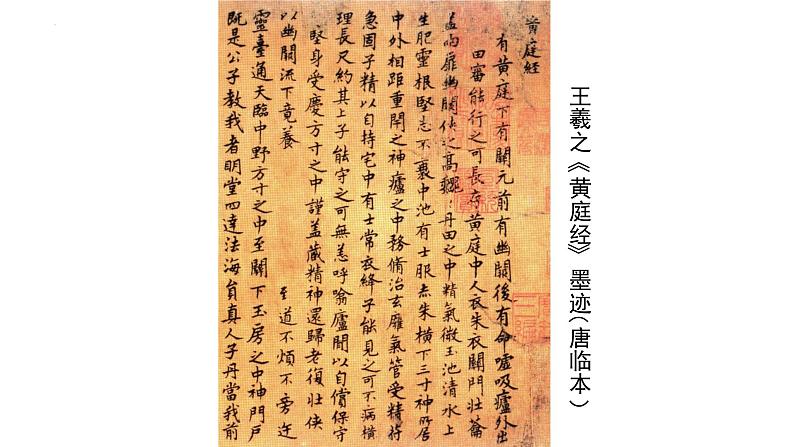 黄庭经
有黄庭下有關元前有幽闕後有命嘘吸廬外出
田審能行之可長存黄庭中人衣朱衣關門壮蘥
盖兩扉幽闕侠之高巍丹田之中精氣微玉池清水上
生肥靈根堅志不衰中池有士服赤朱横下三寸神所居
中外相距重閇之神廬之中務脩治玄廱氣管受精符
急固子精以自持宅中有士常衣絳子能見之可不病横
理長尺約其上子能守之可無恙呼噏廬間以自償保守
堅身受慶方寸之中謹盖藏精神還歸老復壮侠
以幽闕流下竟養 至道不煩不旁迕
靈臺通天臨中野方寸之中至關下玉房之中神門戸
既是公子教我者明堂四達法海員真人子丹當我前
王羲之《黄庭经》墨迹（唐临本）